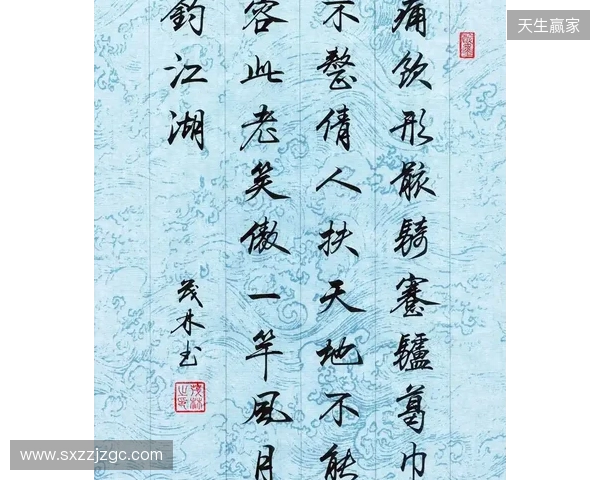 天生赢家
痛飲形骸騎蹇驢葛巾
不整倩人扶天地不能
容此老笑傲一竿風月
釣江湖
茂林书
www.sxzzjzgc.com